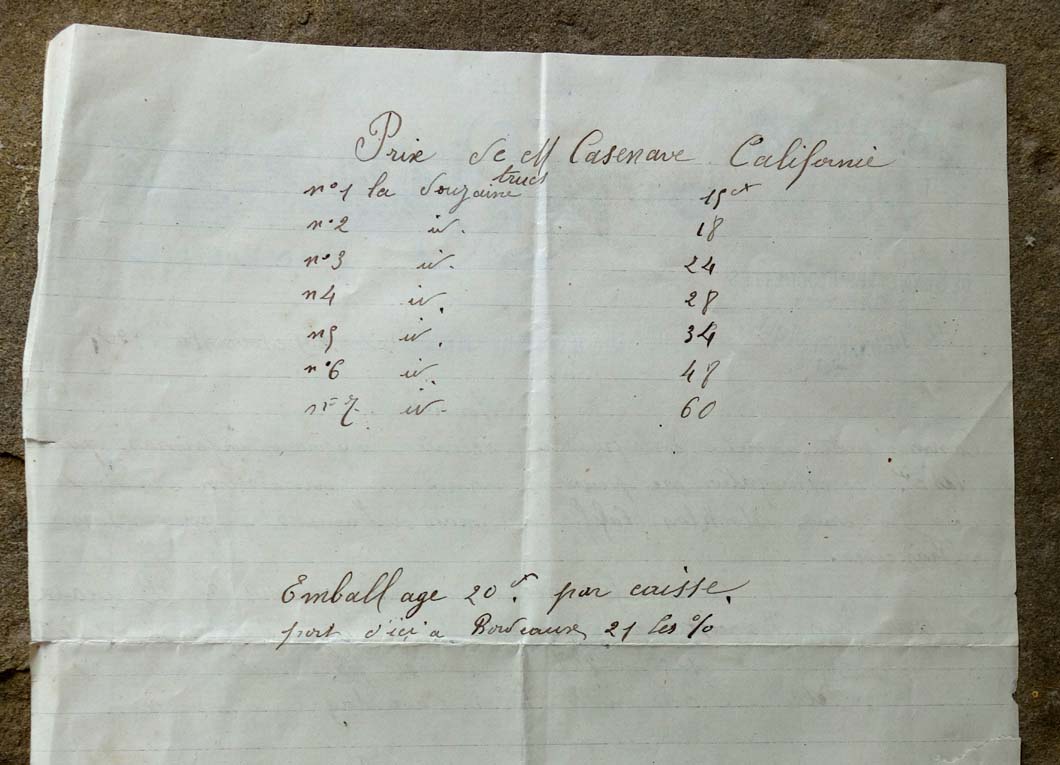 Prix de M Casenave Californie
n°1 la douzaine trucs 15 ct
n°2 id. 18
n°3 id. 24
n4 id. 28
n5 id. 34
n°6 id. 48
n°7 id. 60
Emballage 20 ct. par caisse.
port d'ici a Bordeaux 21 les %